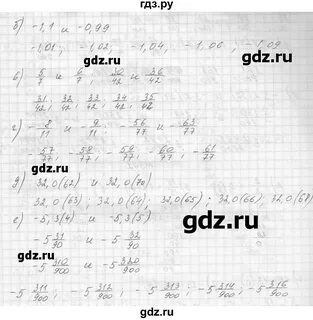 гдз.ру
б) -1,1 и -0,99
-1,01 ; -1,02 ; -1,04 ; -1,06 ; -1,09
в) 5/7 и 6/7 ; 30/42 и 36/42
31/42 ; 32/42 ; 33/42 ; 34/42 ; 35/42
г) -8/11 и -9/11 ; -56/77 и -63/77
-57/77 ; -58/77 ; -59/77 ; -60/77 ; -61/77
gdz.ru
д) 32,0(62) и 32,0(70)
32,0(63) ; 32,0(64) ; 32,0(65) ; 32,0(66) ; 32,0(68)
е) -5,3(4) и -5,3(5)
gdz.ru
-5 31/90 и -5 32/90
-5 310/900 и -5 320/900
gdz.ru
-5 311/900 ; -5 312/900 ; -5 313/900 ; -5 314/900 ; -5 316/900
gdz.ru